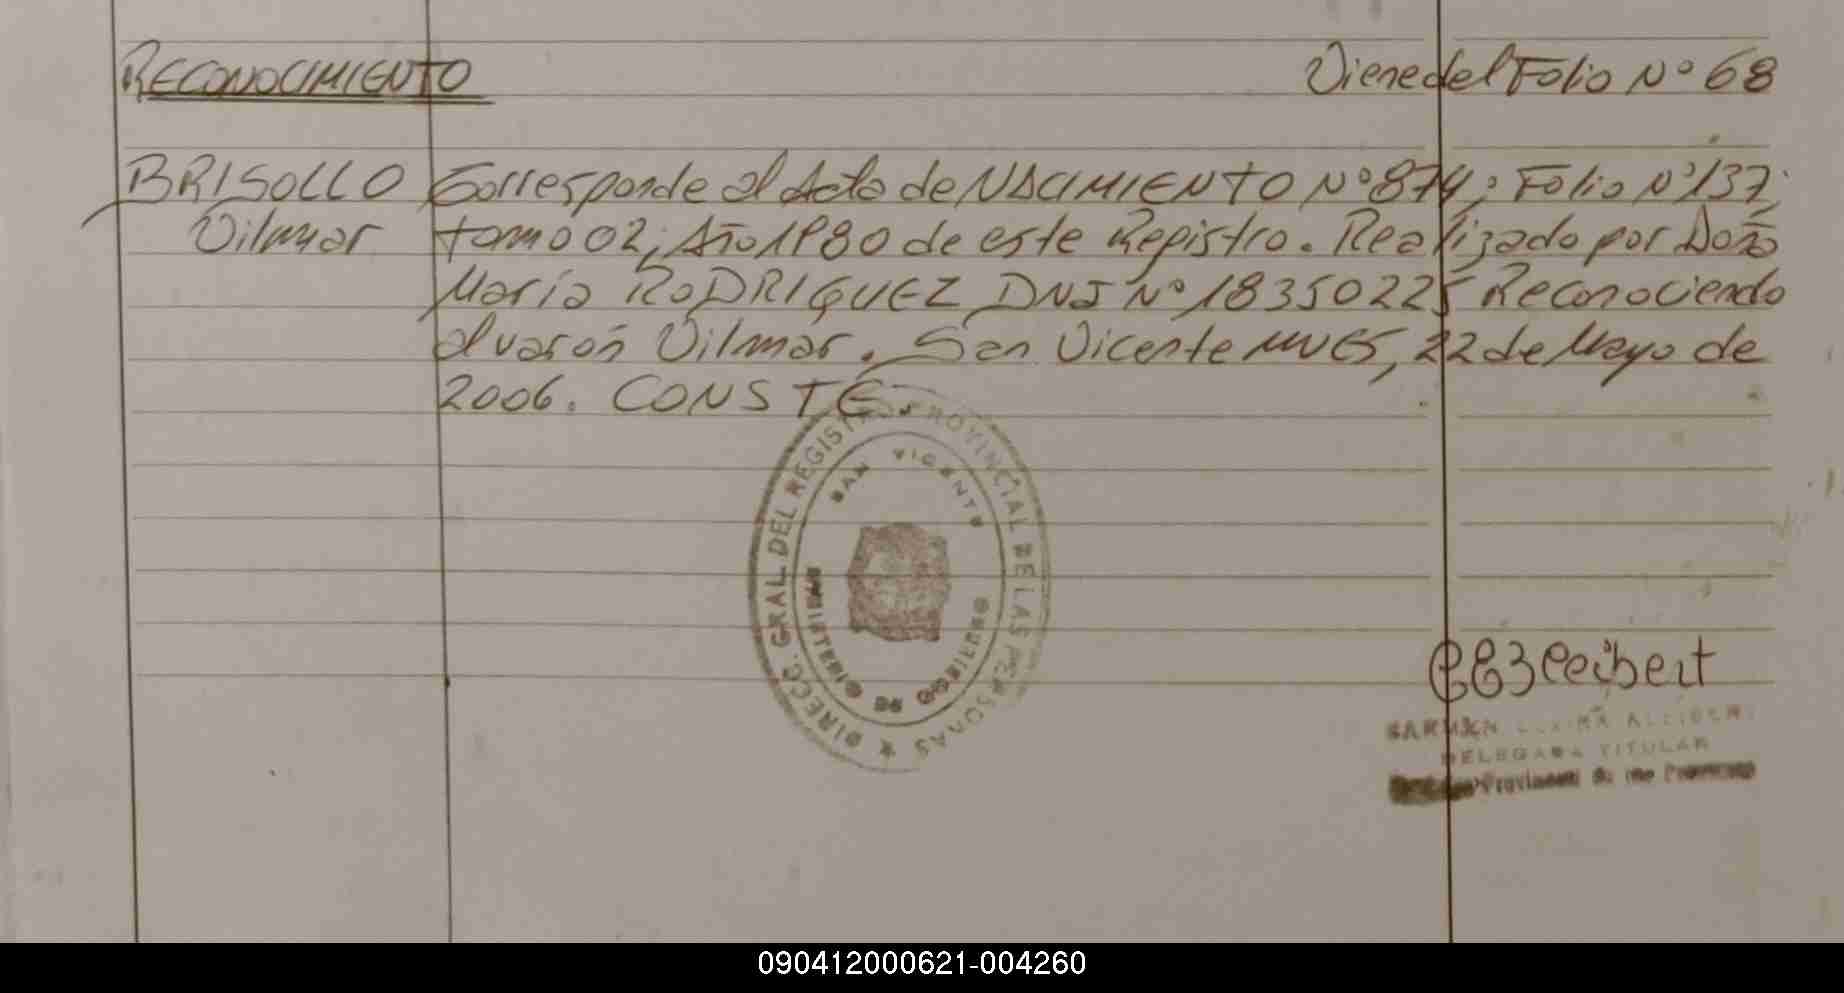 RECONOCIMIENTO Viene del Folio Nº 68
BRISOLLO Corresponde al Acta de NACIMIENTO Nº 874; Folio Nº 137;
Vilmar tomo 02; Año 1980 de este Registro. Realizado por Doña
María RODRIGUEZ DNI Nº 18350225 Reconociendo
al varón Vilmar. San Vicente MNES, 22 de Mayo de
2006. CONSTE
DIRECC. GRAL. DEL REGISTRO PROVINCIAL DE LAS PERSONAS
SAN VICENTE
DELEGADA TITULAR
Provincial
090412000621-004260